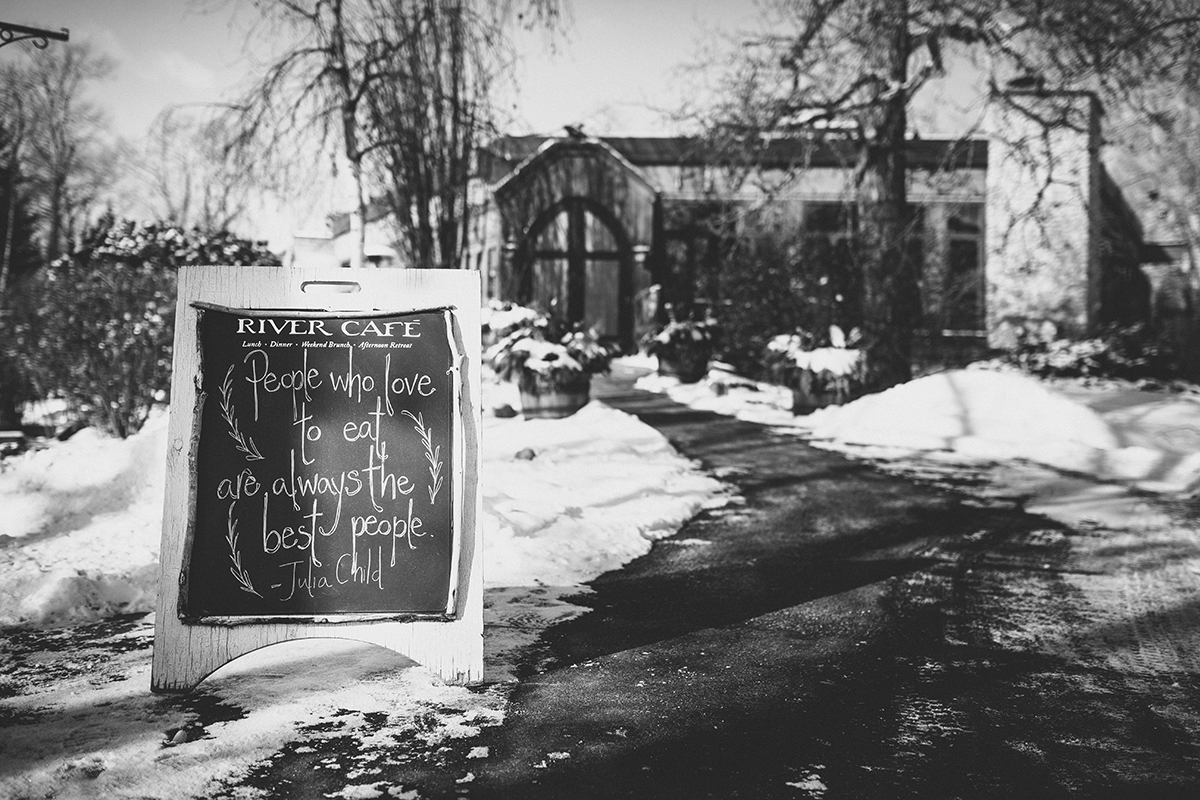 RIVER CAFÉ
Lunch • Dinner • Weekend Brunch • Afternoon Retreat
People who love
to eat
are always the
best people.
- Julia Child